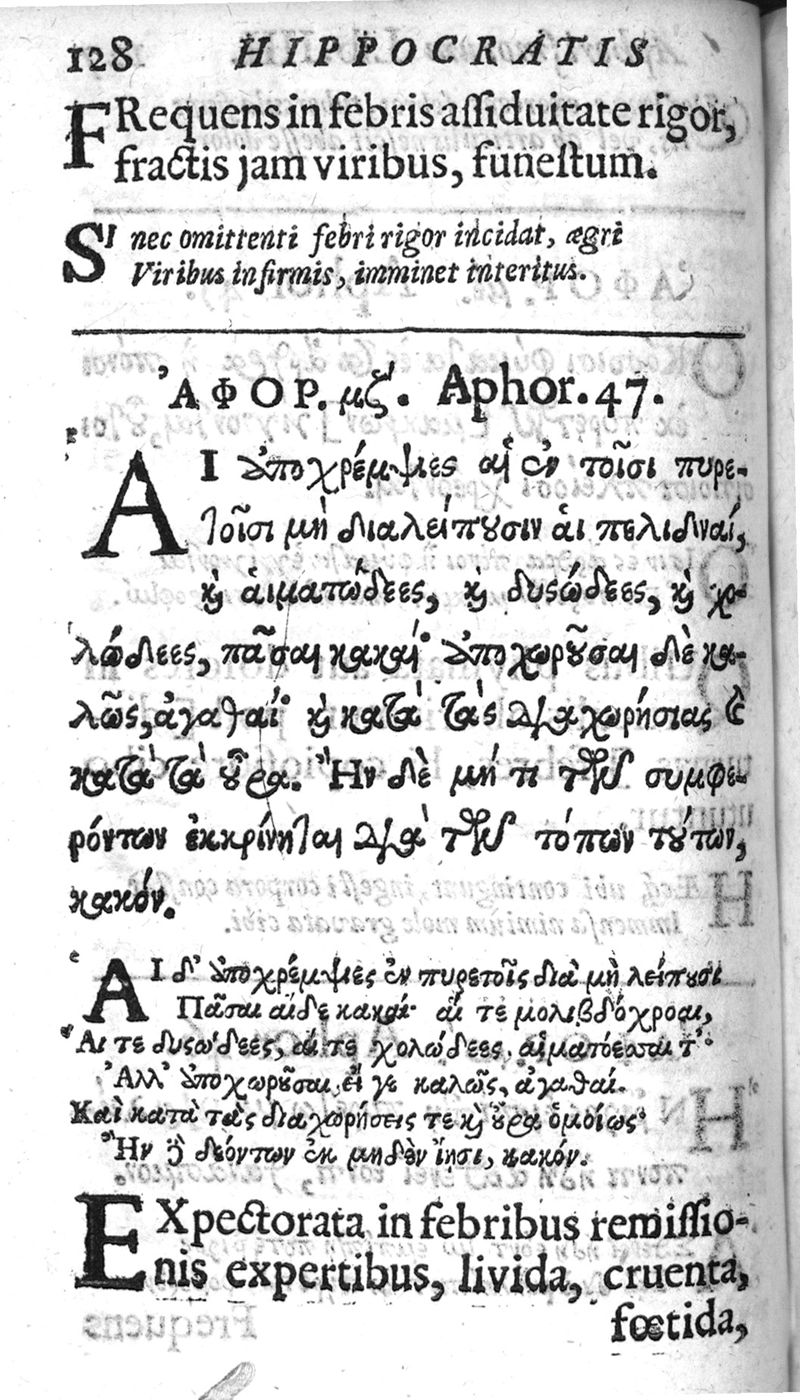 128 HIPPOCRATIS
FRequens in febris aſſiduitate rigor,
fractis jam viribus, funeſtum.
SI nec omittenti febri rigor incidat, ægri
Viribus infirmis, imminet interitus.
ἈΦΟΡ. μζ'. Aphor. 47.
ΑΙ ἀποχρέμψιες αἱ ἐν τοῖσι πυρε-
τοῖσι μὴ διαλείπουσιν αἱ πελιδναί,
καὶ αἱματώδεες, καὶ δυσώδεες, καὶ χο-
λώδεες, πᾶσαι κακαί· ἀποχωροῦσαι δὲ κα-
λῶς, ἀγαθαί· καὶ κατὰ τὰς διαχωρήσιας καὶ
κατὰ τὰ οὖρα. Ἢν δὲ μή τι τῶν συμφε-
ρόντων ἐκκρίνηται διὰ τῶν τόπων τούτων,
κακόν.
ΑΙ δ' ἀποχρέμψιες ἐν πυρετοῖς διὰ μὴ λείπουσι
Πᾶσαι αἵδε κακαί· αἵ τε μολιβδόχροαι,
Αἵ τε δυσώδεες, αἵ τε χολώδεες, αἱματόεσσαι τ'·
Ἀλλ' ἀποχωροῦσαι εἴ γε καλῶς, ἀγαθαί.
Καὶ κατὰ τὰς διαχωρήσεις τε καὶ οὖρα ὁμοίως·
Ἢν δὲ δεόντων ἐκ μηδὲν ἴῃσι, κακόν.
EXpectorata in febribus remiſſio-
nis expertibus, livida, cruenta,
fœtida,